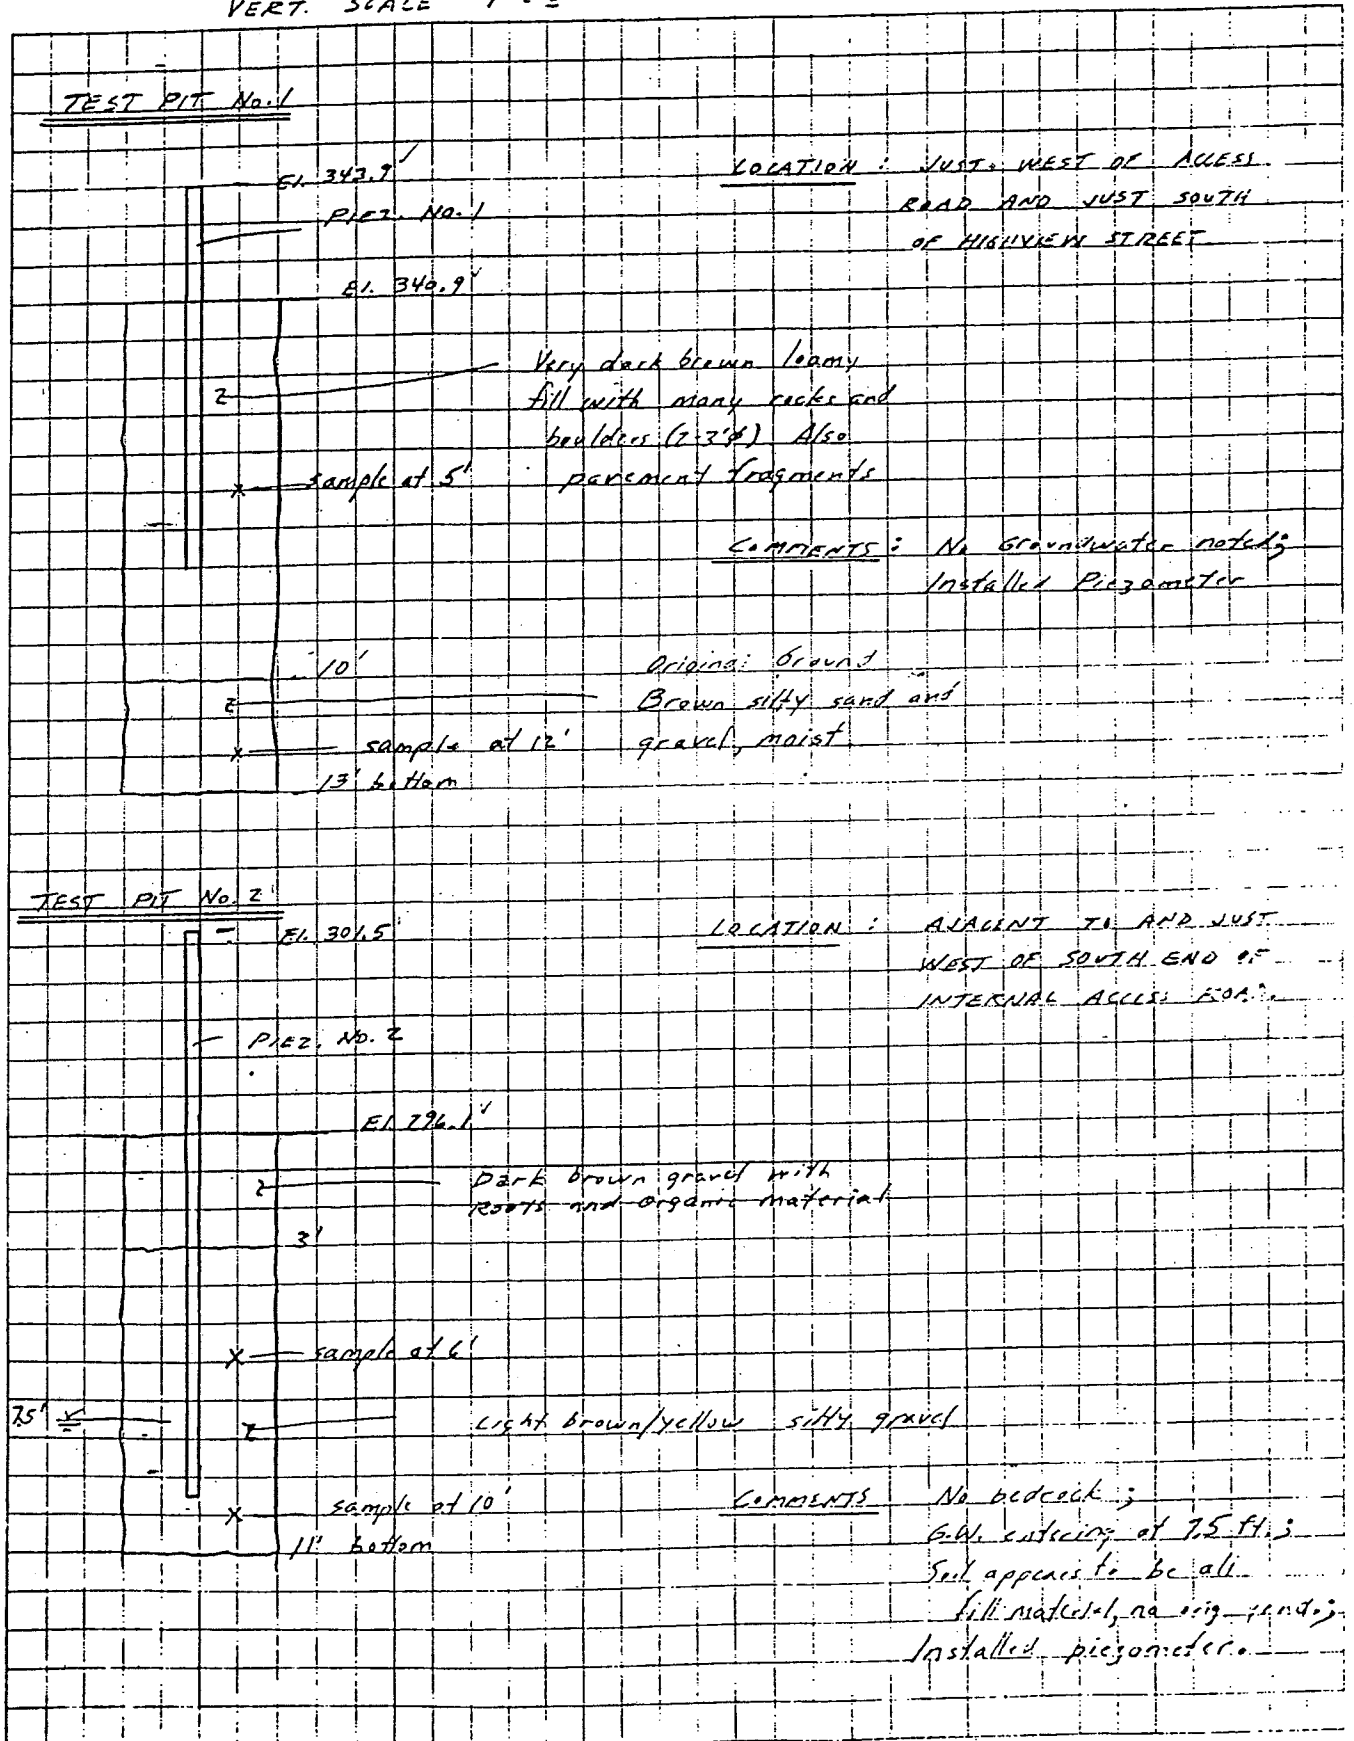 VERT. SCALE
TEST PIT No. 1
El. 343.9'
PIEZ. No. 1
El. 340.9'
LOCATION : JUST WEST OF ACCESS
ROAD AND JUST SOUTH
OF HIGHVIEW STREET
Very dark brown loamy
fill with many rocks and
boulders (2-3'ø) Also
pavement fragments
sample at 5'
COMMENTS : No Groundwater noted;
Installed Piezometer
10'
Original Ground
Brown silty sand and
gravel, moist
sample at 12'
13' bottom
TEST PIT No. 2
El. 301.5'
PIEZ. No. 2
LOCATION : AJACENT TO AND JUST
WEST OF SOUTH END OF
INTERNAL ACCESS ROAD.
El. 296.1'
Dark brown gravel with
Roots and organic material
3'
sample at 6'
7.5'
Light brown/yellow silty gravel
sample at 10'
11' bottom
COMMENTS No bedrock ;
G.W. entering at 7.5 ft.;
Soil appears to be all
fill material, no orig.
Installed piezometer.